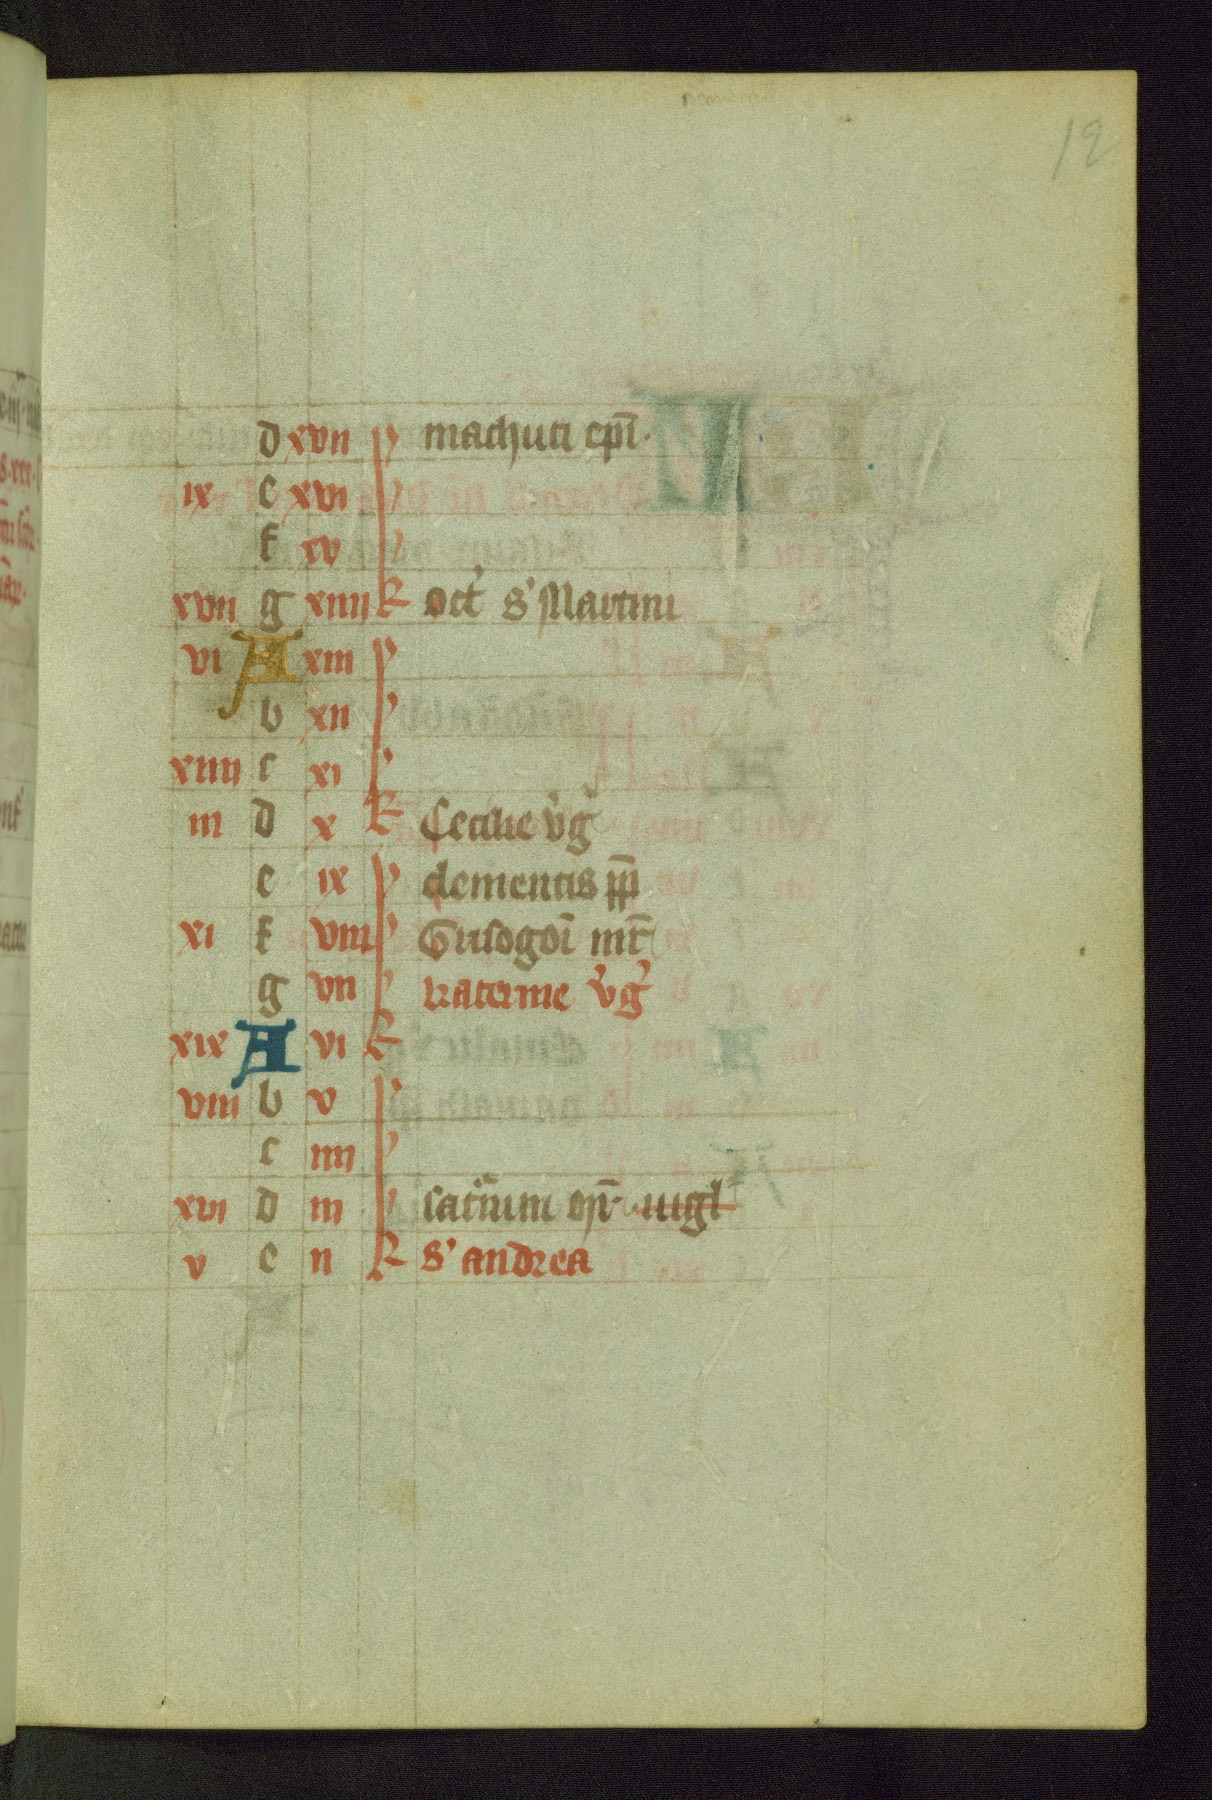 12
d xvii machuti epi.
ix e xvi
f xv
xvii g xiiii kl oct s' Martini
vi A xiii
b xii
xiiii c xi
iii d x kl Cecilie vg
e ix clementis pp
xi f viii Grisogoi mr
g vii katerine vg
xix A vi kl
viii b v
c iiii
xvi d iii saturnini vigl
v e ii kl s' andrea